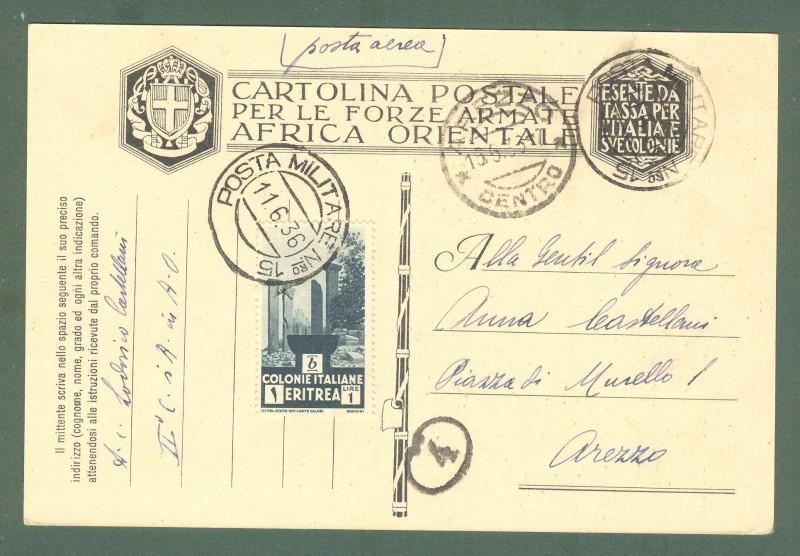 (posta aerea)
CARTOLINA POSTALE
PER LE FORZE ARMATE
AFRICA ORIENTALE
ESENTE DA
TASSA PER
L'ITALIA E
SVE COLONIE
POSTA MILITARE Nro 15
11.6.36
AREZZO
CENTRO
Nro 15
b
COLONIE ITALIANE
1 ERITREA LIRE 1
IST.POL.STATO-OFF.CARTE VALORI
4
Il mittente scriva nello spazio seguente il suo preciso
indirizzo (cognome, nome, grado ed ogni altra indicazione)
attenendosi alle istruzioni ricevute dal proprio comando.
Lodovico Castellani
II° C. d'A. in A.O.
Alla Gentil Signora
Anna Castellani
Piazza di Murello 1
Arezzo